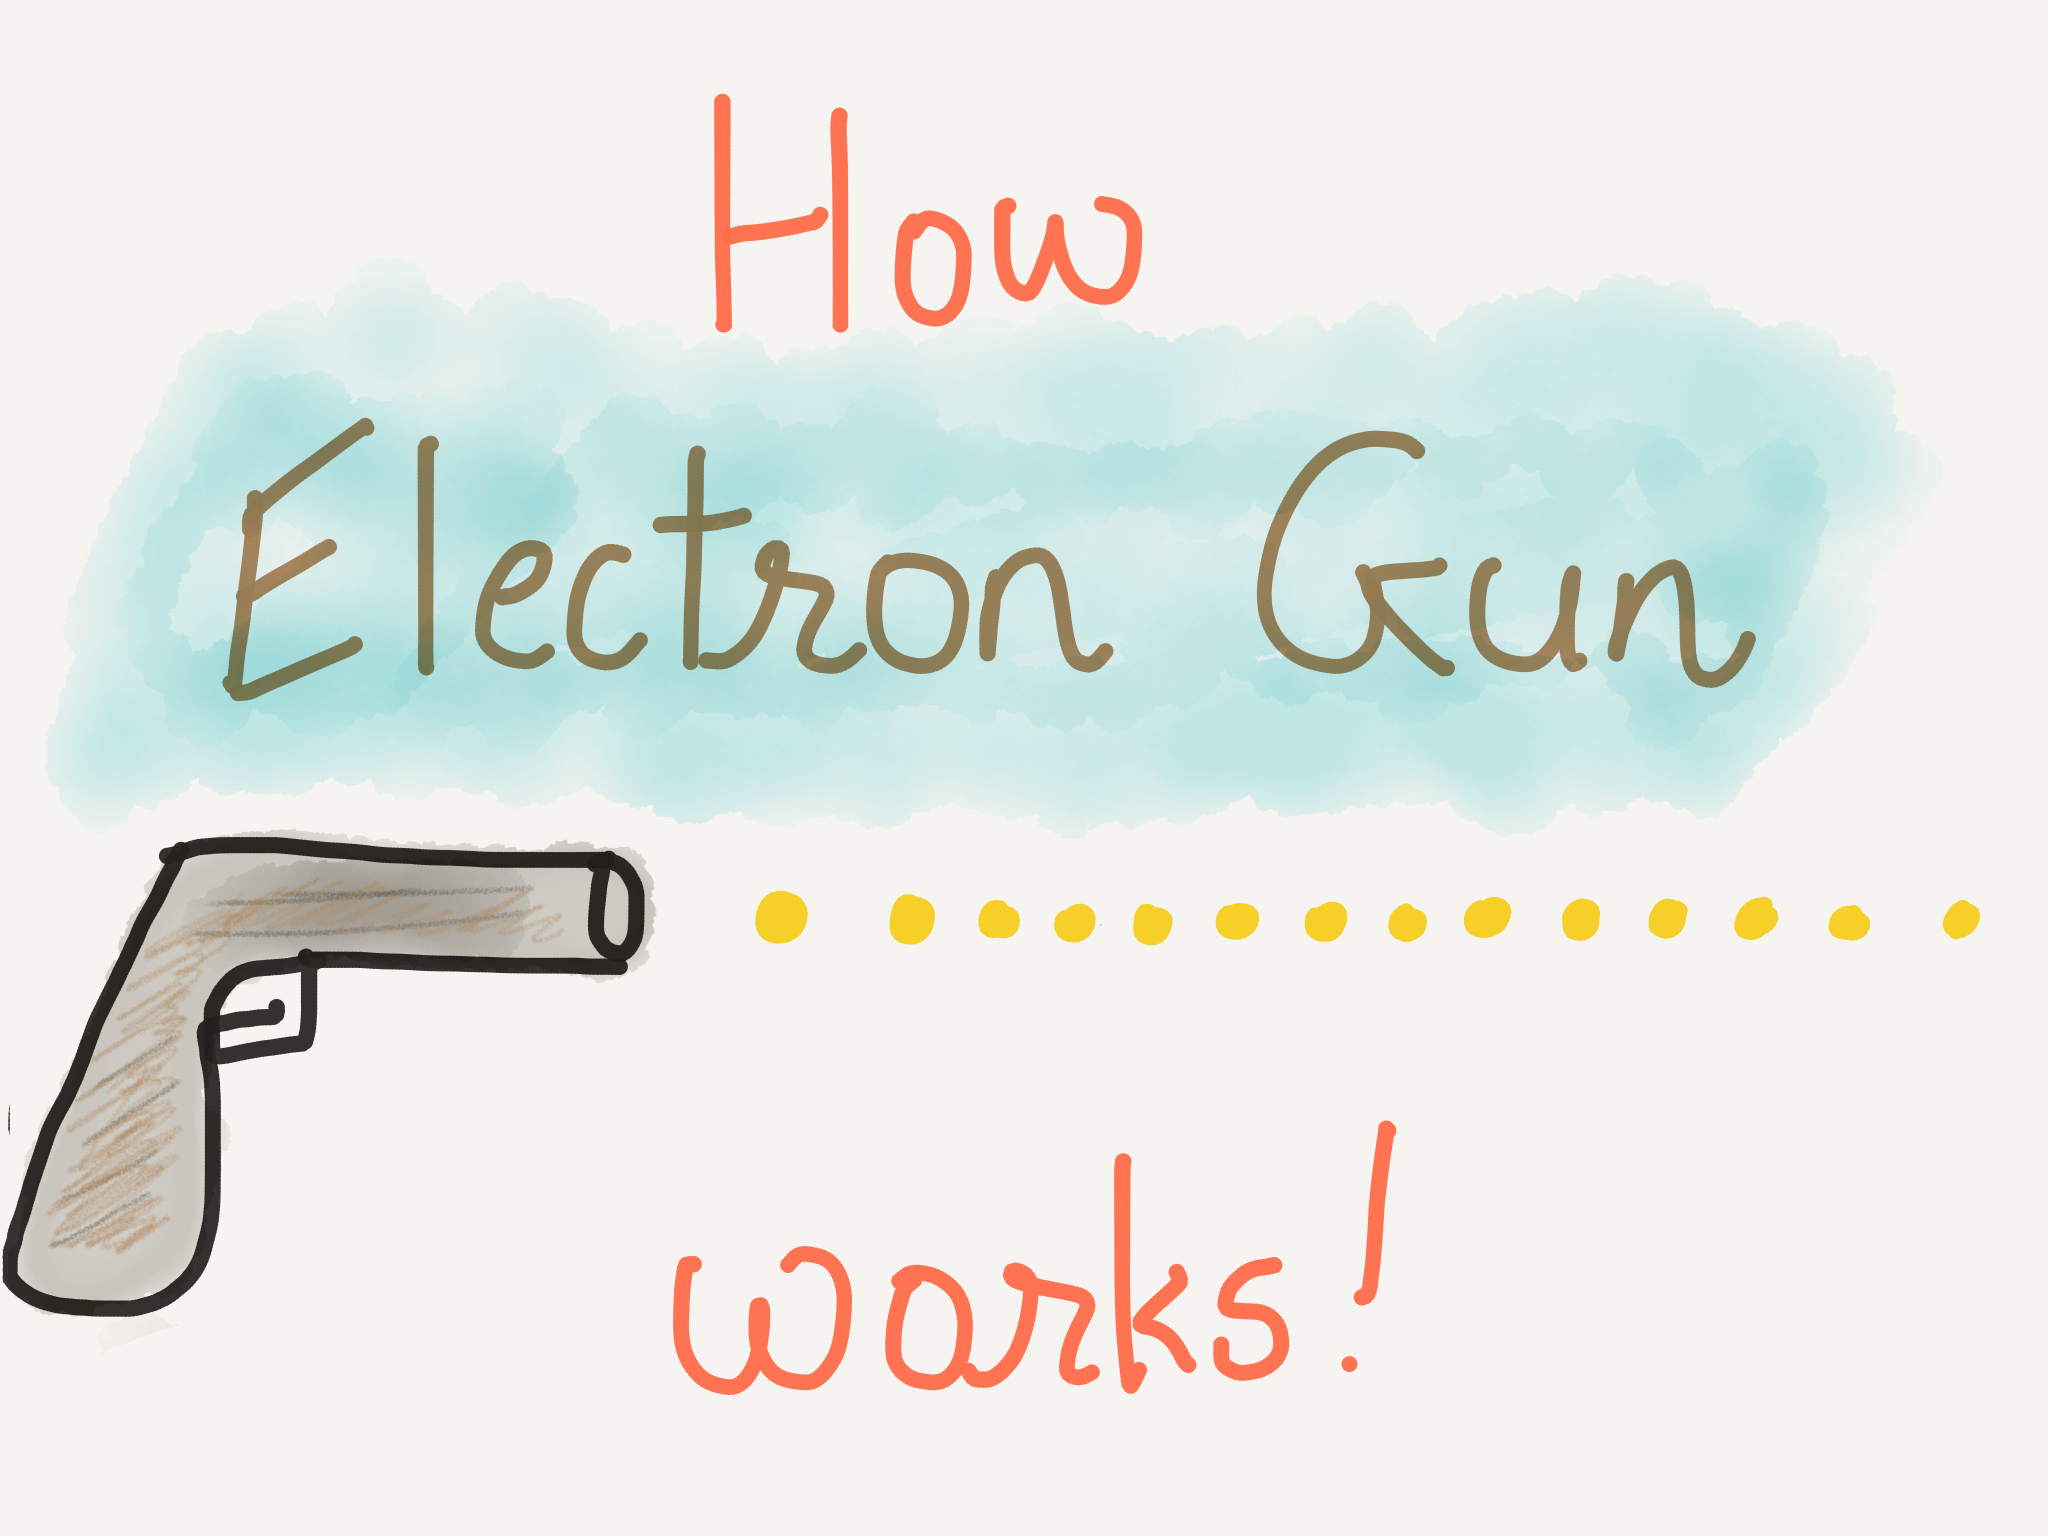 How
Electron Gun
works!